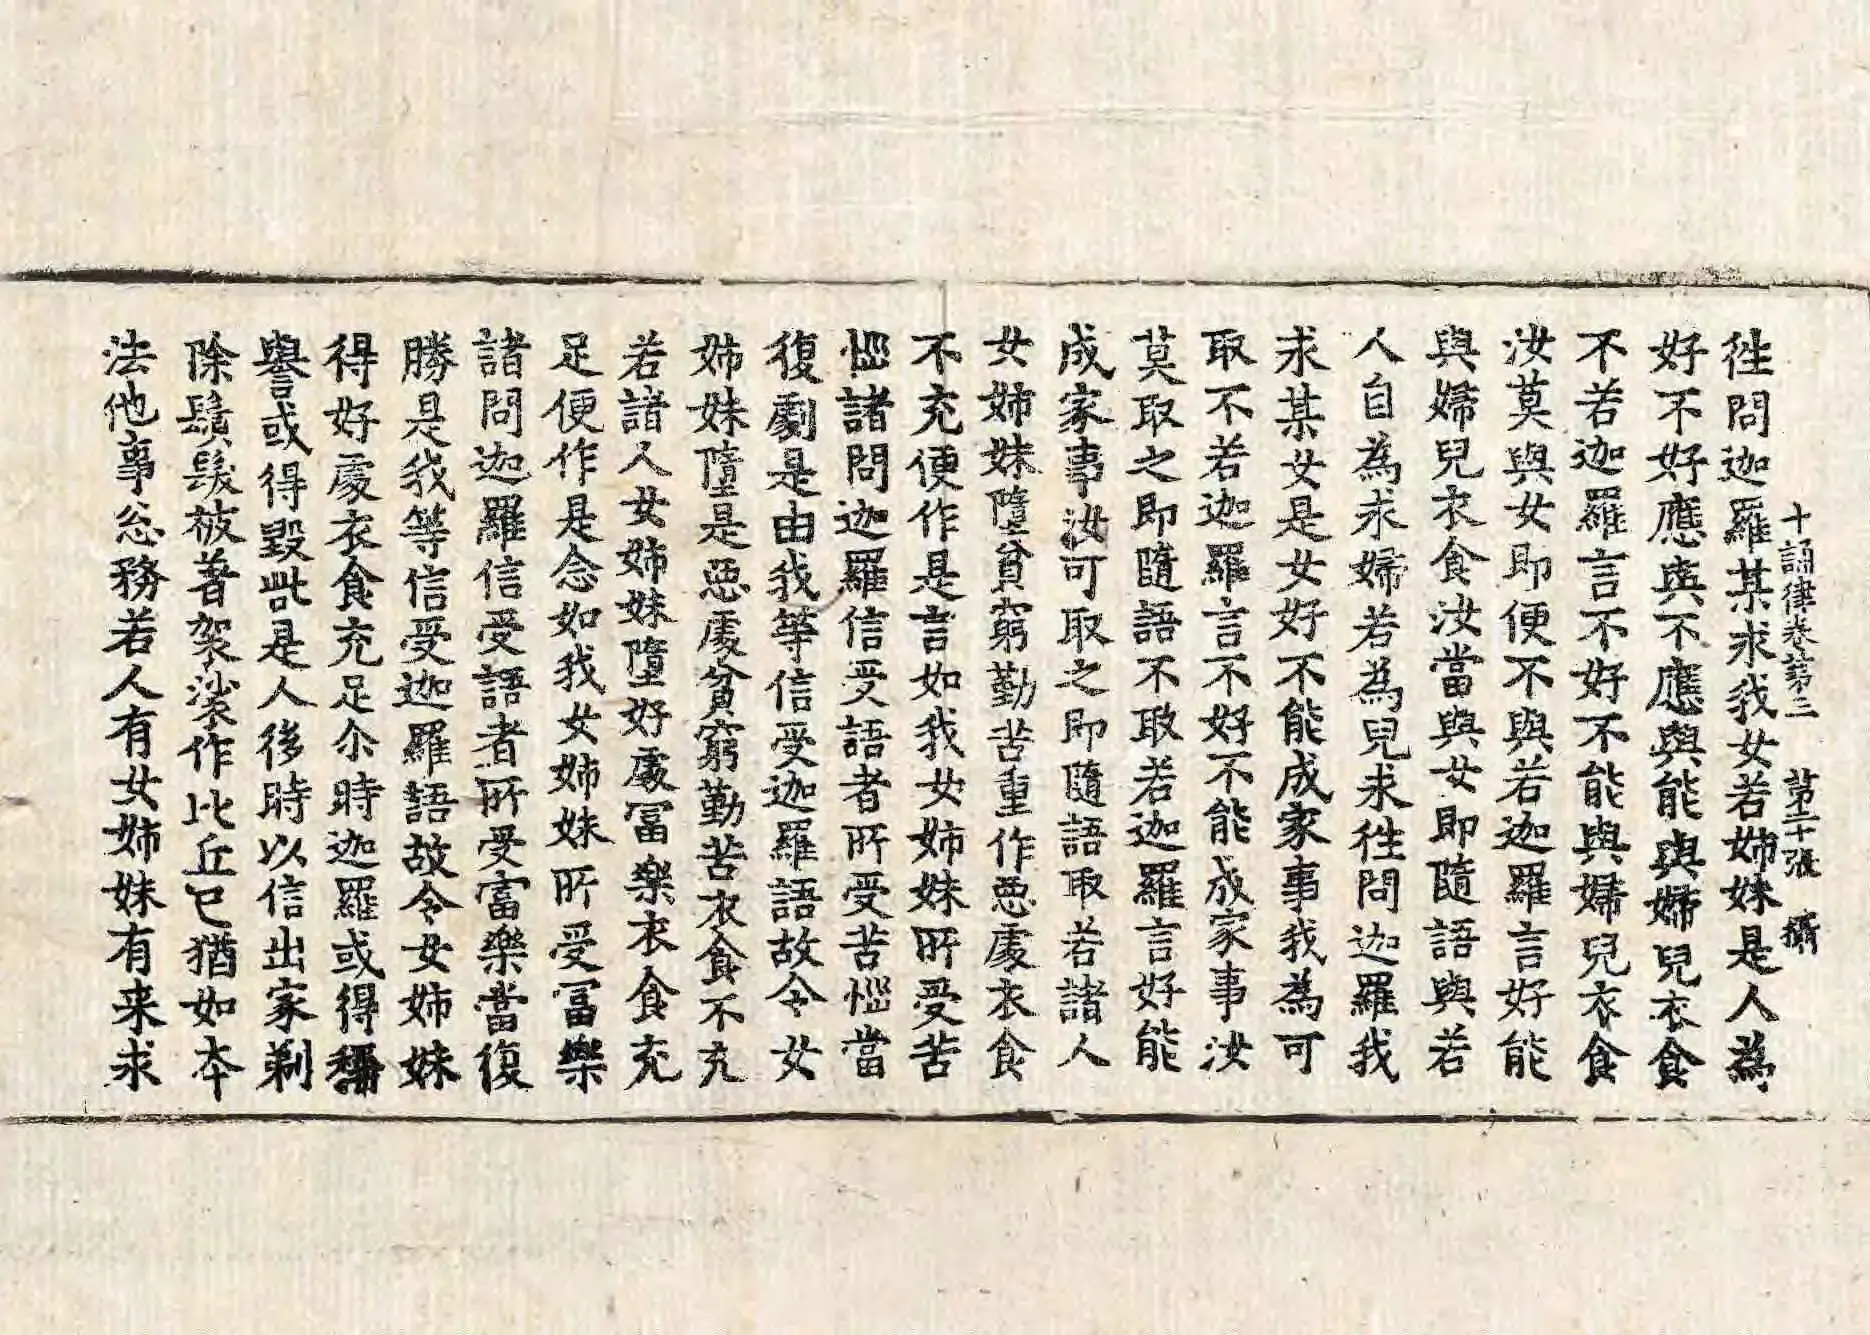 十誦律卷第三 第二十張 攝
徃問迦羅某求我女若姉妹是人為
好不好應與不應與能與婦兒衣食
不若迦羅言不好不能與婦兒衣食
汝莫與女即便不與若迦羅言好能
與婦兒衣食汝當與女即隨語與若
人自為求婦若為兒求徃問迦羅我
求某女是女好不能成家事我為可
取不若迦羅言不好不能成家事汝
莫取之即隨語不取若迦羅言好能
成家事汝可取之即隨語取若諸人
女姉妹墮貧窮勤苦重作惡處衣食
不充便作是言如我女姉妹所受苦
惱諸問迦羅信受語者所受苦惱當
復劇是由我等信受迦羅語故令女
姉妹墮是惡處貧窮勤苦衣食不充
若諸人女姉妹墮好處冨樂衣食充
足便作是念如我女姉妹所受冨樂
諸問迦羅信受語者所受富樂當復
勝是我等信受迦羅語故令女姉妹
得好處衣食充足尒時迦羅或得稱
譽或得毀呰是人後時以信出家剃
除鬚髮被著袈裟作比丘已猶如本
法他事忩務若人有女姉妹有来求